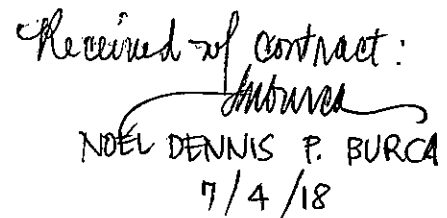 Received w/ contract:
NOEL DENNIS P. BURCA
7/4/18